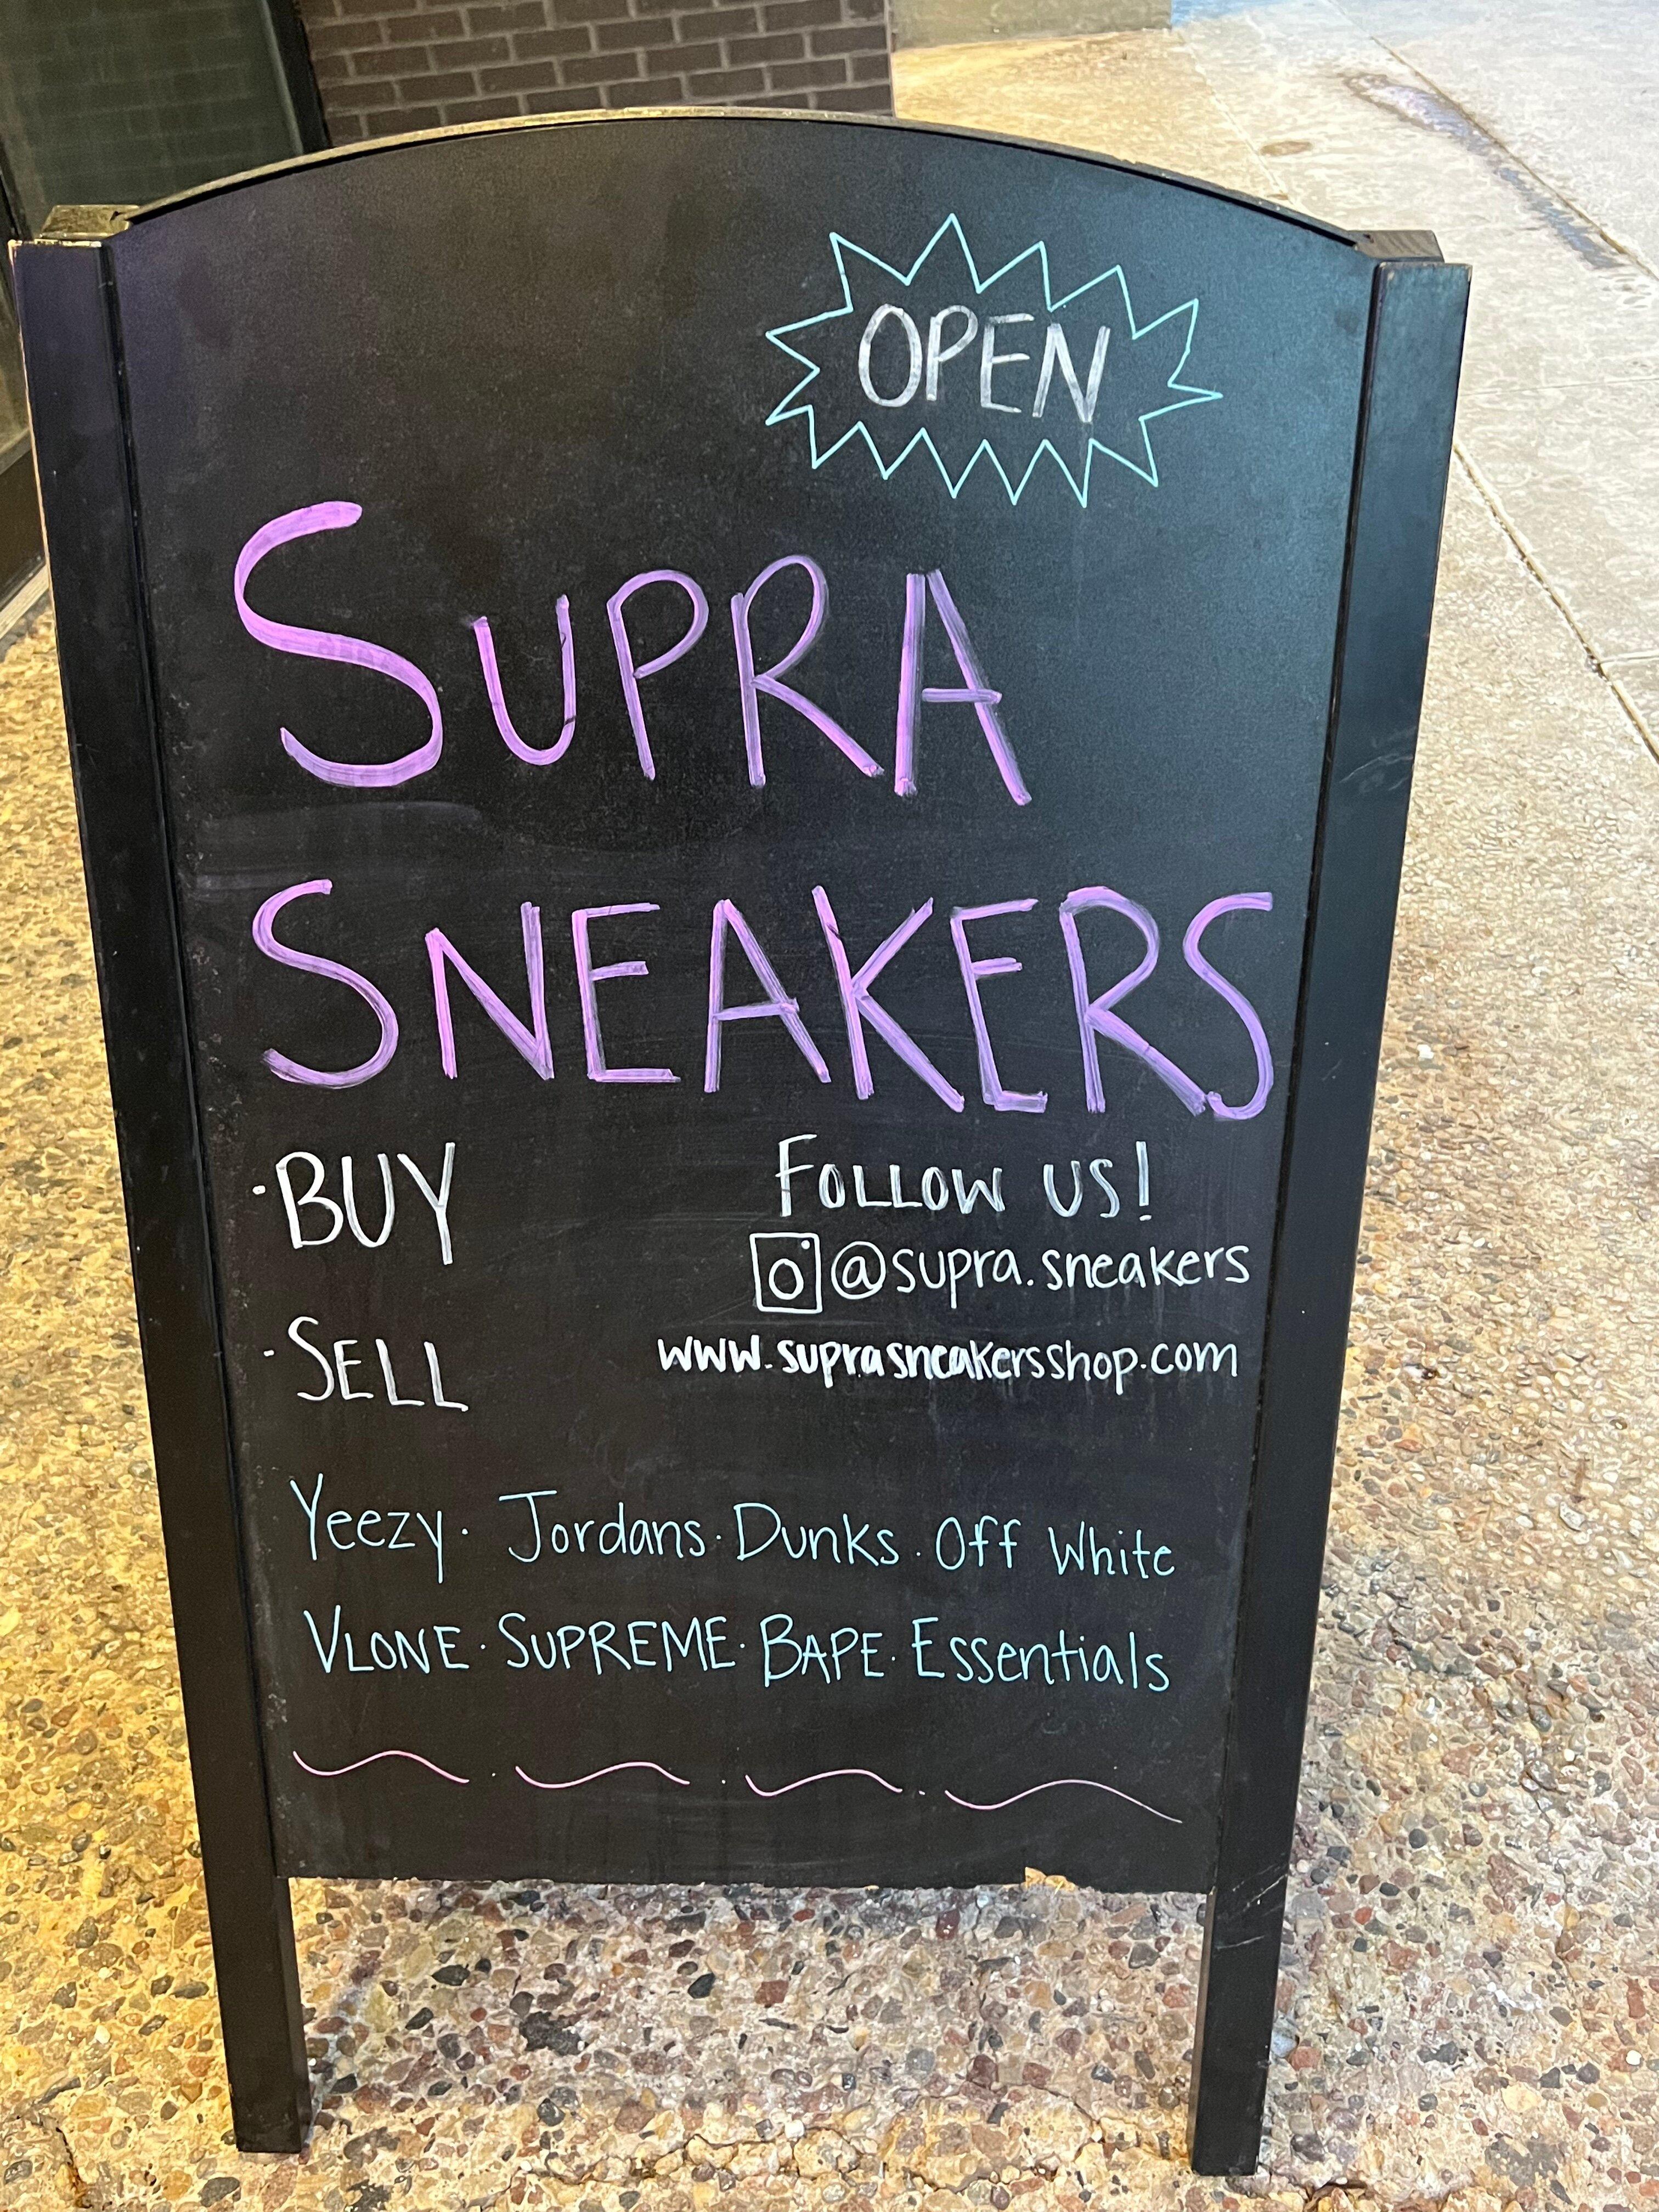 OPEN
SUPRA
SNEAKERS
·BUY
FOLLOW US!
@supra.sneakers
·SELL
www.suprasneakersshop.com
Yeezy · Jordans · Dunks · Off White
VLONE · SUPREME · BAPE · Essentials